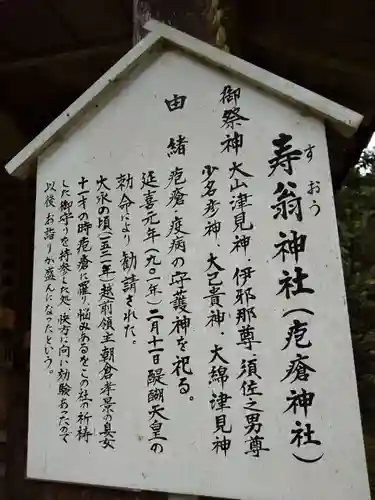 寿翁神社(疱瘡神社)
すおう
御祭神 大山津見神・伊耶那尊・須佐之男尊
少名彦神、大己貴神、大綿津見神
由緒 疱瘡・疫病の守護神を祀る。
延喜元年(九〇一年)二月十一日醍醐天皇の
勅命により勧請された。
大永の頃(一五二一年越前領主朝倉孝景の息女
十一才の時疱瘡に罹り悩みあるをこの社の祈祷
した御守りを持参した処快方に向い効験あったので
以後お詣りが盛んになったという。